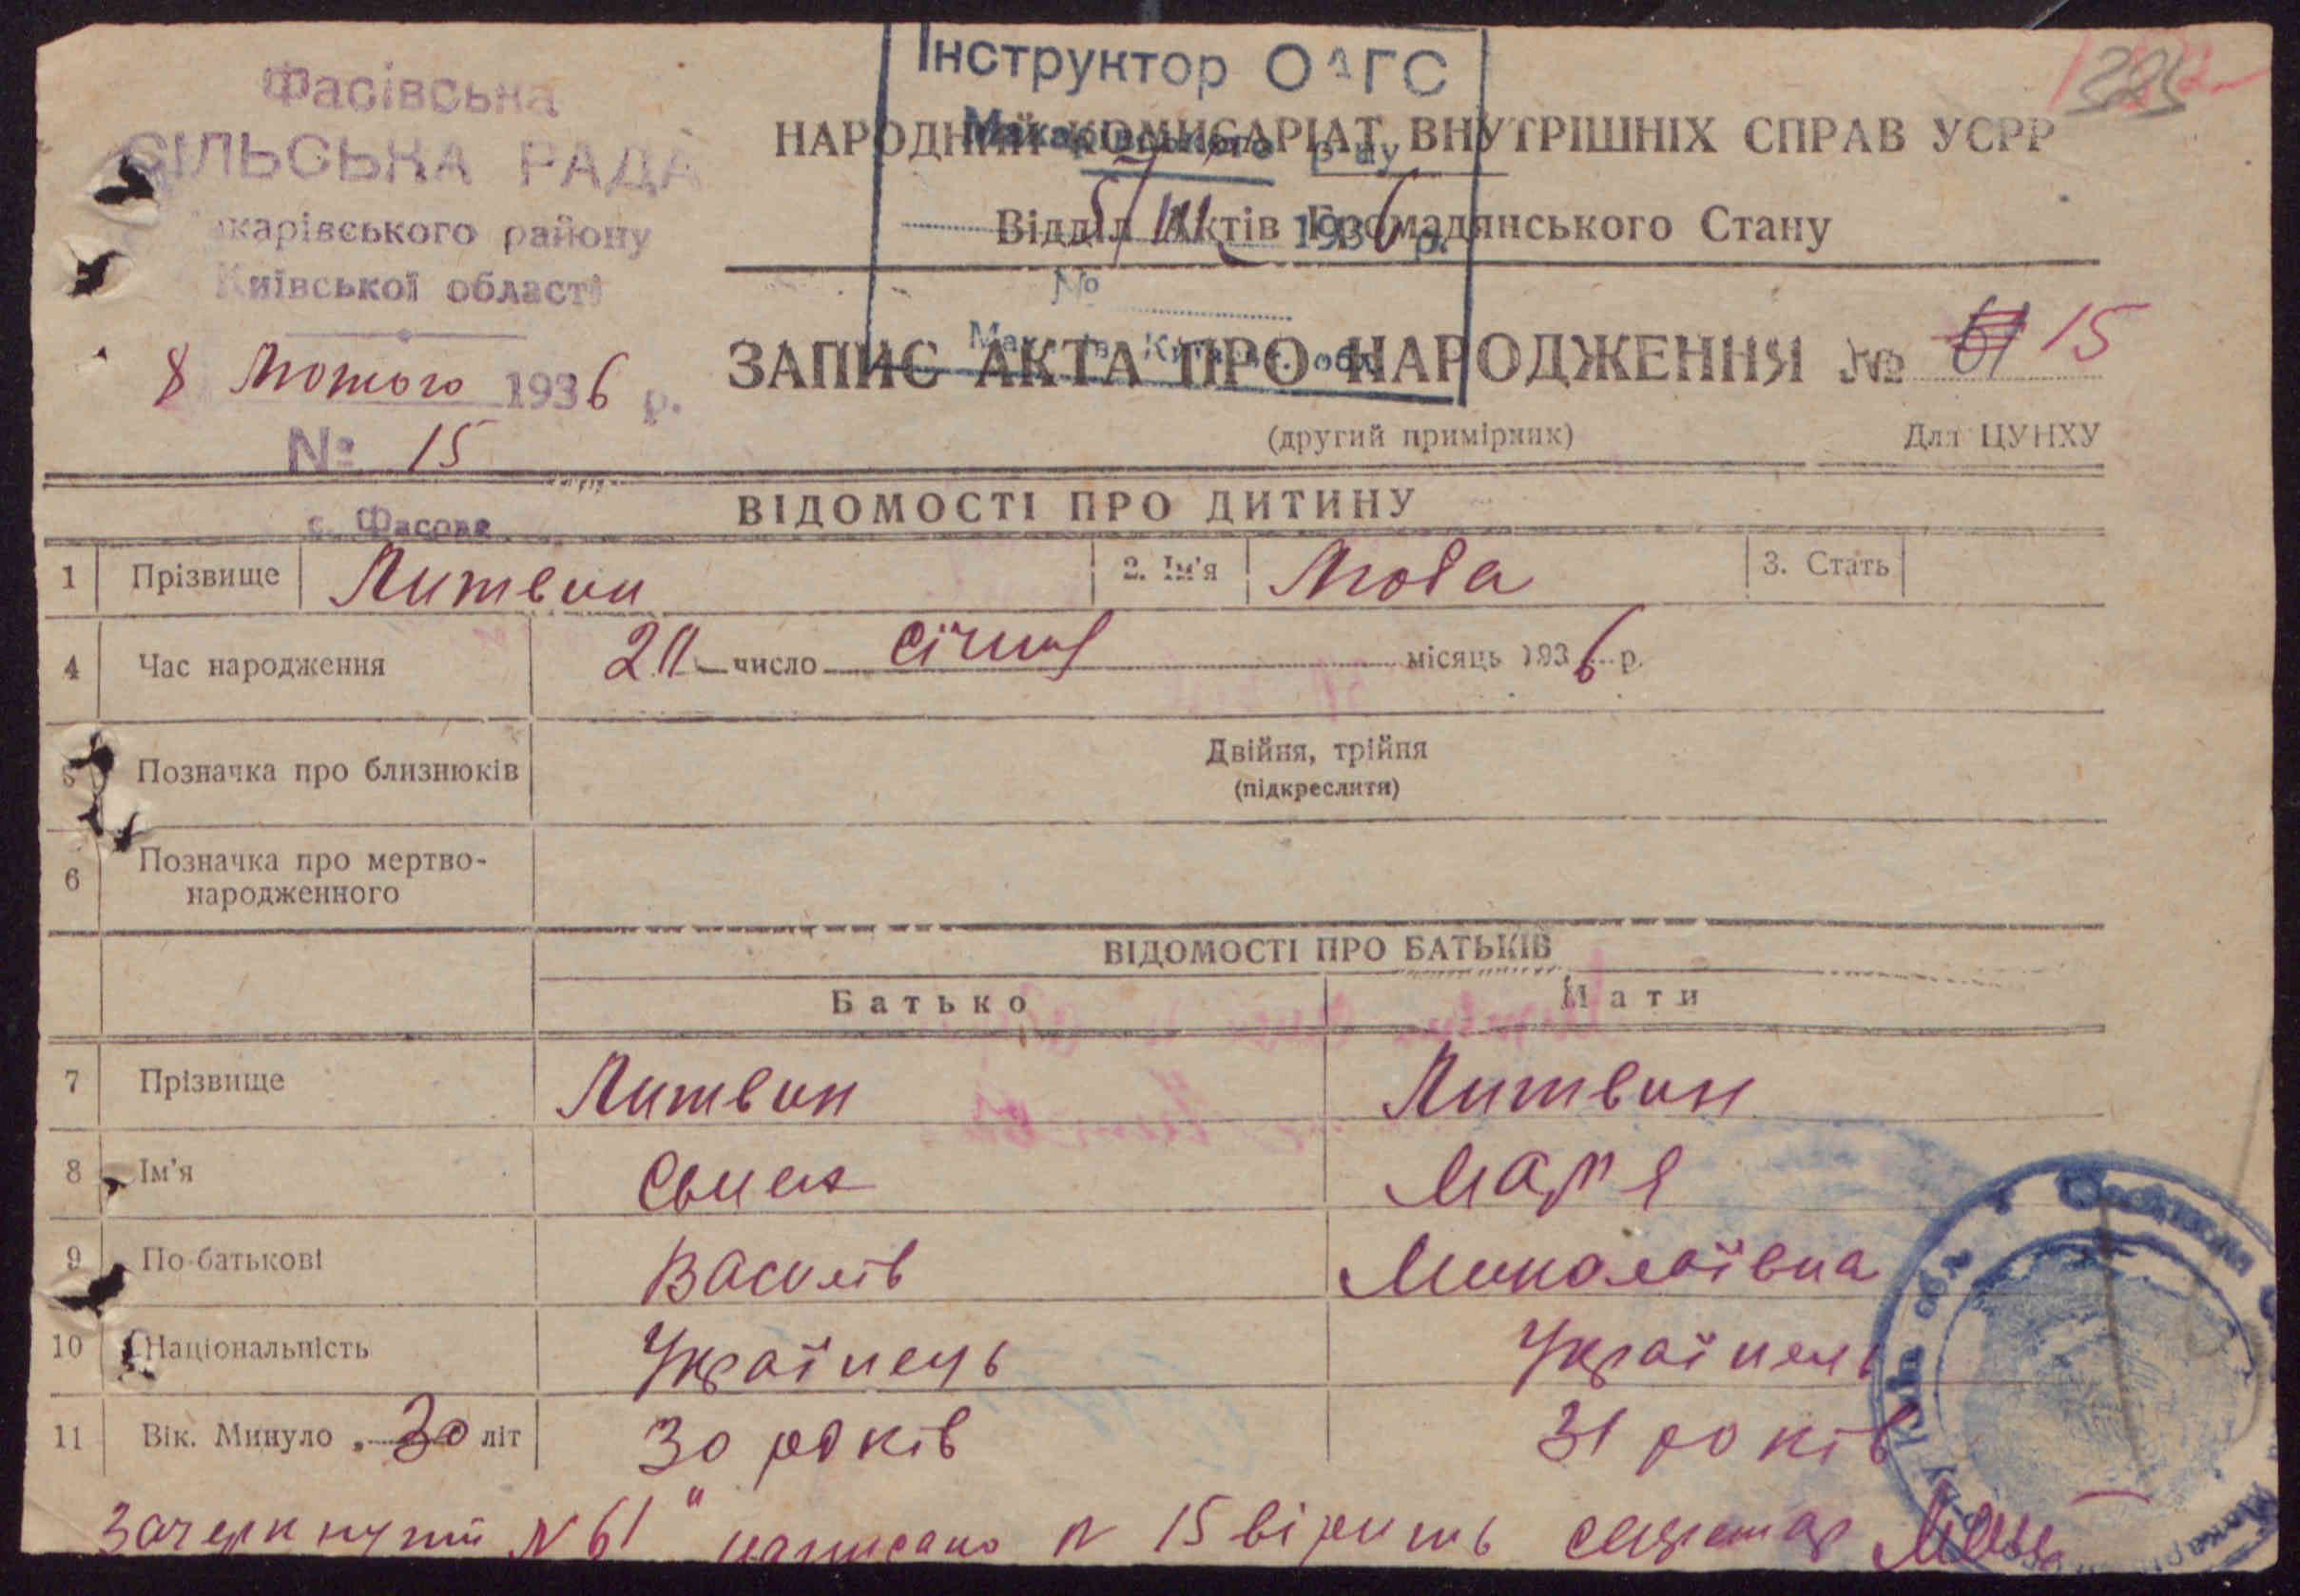 Фасівська
СІЛЬСЬКА РАДА
карівського району
Київської області
8 Лютого 1936 р.
№ 15
с. Фасова
Інструктор ОАГС
Макарівського р-ну
5/III 1936 р.
№
НАРОДНИЙ КОМИСАРІАТ ВНУТРІШНІХ СПРАВ УСРР
Відділ Актів Громадянського Стану
ЗАПИС АКТА ПРО НАРОДЖЕННЯ № 61 15
(другий примірник) Для ЦУНХУ
ВІДОМОСТІ ПРО ДИТИНУ
1 Прізвище Литвин 2. Ім'я Люба 3. Стать
4 Час народження число січня місяць 1936 р.
5 Позначка про близнюків Двійня, трійня
(підкреслити)
6 Позначка про мертво-
народженного
ВІДОМОСТІ ПРО БАТЬКІВ
Батько Мати
7 Прізвище Литвин Литвин
8 Ім'я Мар'я
9 По-батькові Василів Миколаївна
10 Національність Українець Українець
11 Вік. Минуло 30 літ 30 років 31 років
Зачеркнутий N 61 написано N 15 вірить секретар